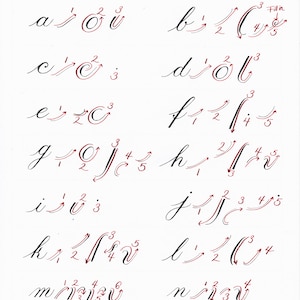 a 1 2 3 b 1 2 3 4 5
c 1 2 3 d 1 2 3
e 1 2 3 f 1 2 3 4 5
g 1 2 3 4 5 h 1 2 3 4 5
i 1 2 3 j 1 2 3 4 5
k 1 2 3 4 5 l 1 2 3 4
m n